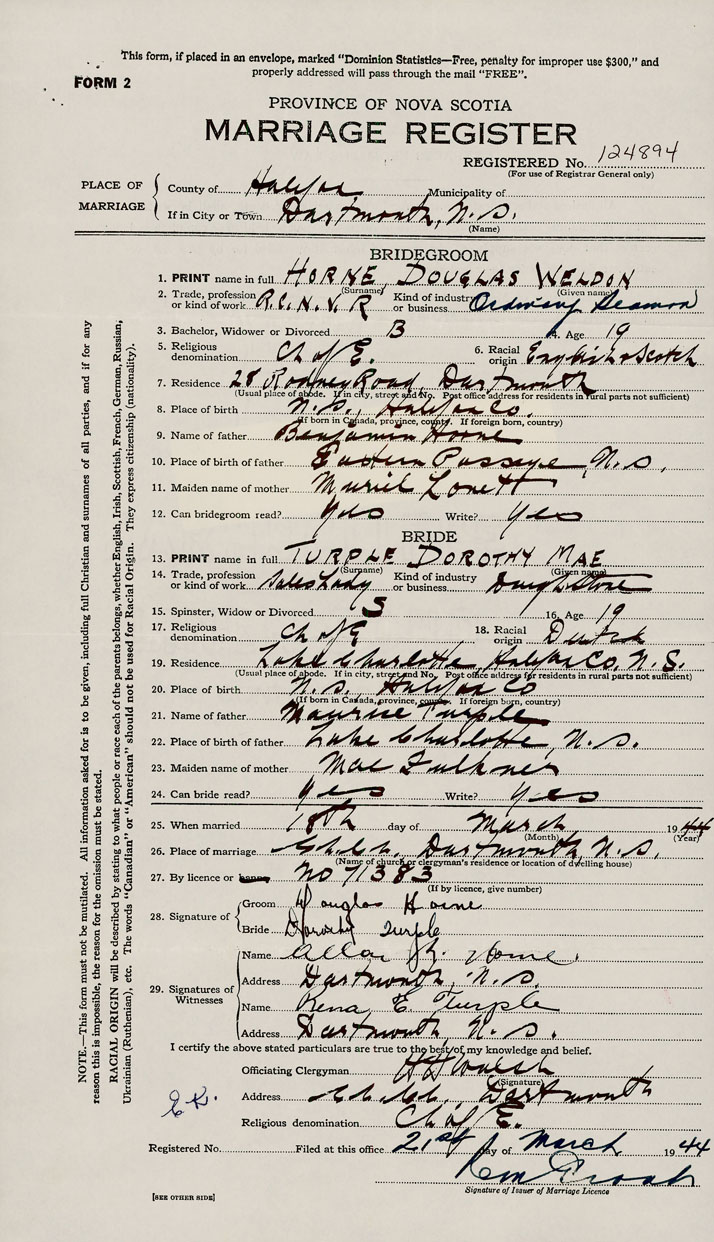 This form, if placed in an envelope, marked "Dominion Statistics—Free, penalty for improper use $300," and
properly addressed will pass through the mail "FREE".
FORM 2
PROVINCE OF NOVA SCOTIA
MARRIAGE REGISTER
REGISTERED No. 124894
(For use of Registrar General only)
PLACE OF MARRIAGE
County of Halifax Municipality of
If in City or Town Dartmouth, N.S.
(Name)
BRIDEGROOM
1. PRINT name in full HORNE, DOUGLAS WELDON
(Surname) (Given name)
2. Trade, profession or kind of work R.C.N.V.R Kind of industry or business Ordinary Seaman
3. Bachelor, Widower or Divorced B 4. Age 19
5. Religious denomination Ch of E. 6. Racial origin English & Scotch
7. Residence 28 Rodney Road, Dartmouth
(Usual place of abode. If in city, street and No. Post office address for residents in rural parts not sufficient)
8. Place of birth N.S., Halifax Co.
(If born in Canada, province, county. If foreign born, country)
9. Name of father Benjamin Horne
10. Place of birth of father Eastern Passage, N.S.
11. Maiden name of mother Muriel
12. Can bridegroom read? Yes Write? Yes
BRIDE
13. PRINT name in full TURPLE DOROTHY MAE
(Surname) (Given name)
14. Trade, profession or kind of work Saleslady Kind of industry or business Drug Store
15. Spinster, Widow or Divorced S 16. Age 19
17. Religious denomination Ch of E 18. Racial origin Dutch
19. Residence Lake Charlotte, Halifax Co, N.S.
(Usual place of abode. If in city, street and No. Post office address for residents in rural parts not sufficient)
20. Place of birth N.S., Halifax Co
(If born in Canada, province, county. If foreign born, country)
21. Name of father Maurice Turple
22. Place of birth of father Lake Charlotte, N.S.
23. Maiden name of mother Mae Faulkner
24. Can bride read? Yes Write? Yes
25. When married 18th day of March 1944
(Month) (Year)
26. Place of marriage Dartmouth, N.S.
(Name of church or clergyman's residence or location of dwelling house)
27. By licence or banns No 71383
(If by licence, give number)
28. Signature of
Groom Douglas Horne
Bride Dorothy Turple
29. Signatures of Witnesses
Name Horne
Address Dartmouth, N.S.
Name Rena E. Turple
Address Dartmouth, N.S.
I certify the above stated particulars are true to the best of my knowledge and belief.
Officiating Clergyman Walsh
(Signature)
Address Dartmouth
Religious denomination Ch of E.
Registered No. Filed at this office 21st day of March 1944
Signature of Issuer of Marriage Licence
[SEE OTHER SIDE]
NOTE.—This form must not be mutilated. All information asked for is to be given, including full Christian and surnames of all parties, and if for any
reason this is impossible, the reason for the omission must be stated.
RACIAL ORIGIN will be described by stating to what people or race each of the parents belongs, whether English, Irish, Scottish, French, German, Russian,
Ukrainian (Ruthenian), etc. The words "Canadian" or "American" should not be used for Racial Origin. They express citizenship (nationality).